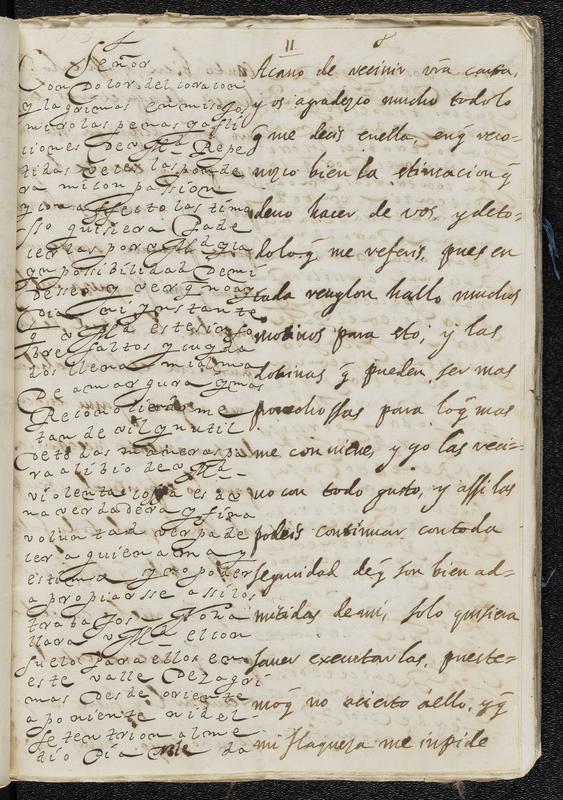 11
Señor
Con Dolor del coraçon
y lagrimas en mis ojos
miro las penas y afli
ciones De V Md Repe
tidas
ra mi con passion
y con afecto las tima
sso quisiera Pade
cer las por V Md y la
ynpossibilidad Demi
Desseo y ver q no ay
Dia ni ynstante
q V Md este sin so
bre saltos y cuyda
dos llena mi alma
De amargura y mas
Reconociendome
tan de vil y nutil
De todas maneras pa
ra alibio de V Md
violenta cossa es la
na verdadera y fina
voluntad ver pade
cer a quien ama y
estima y no poder
apropiarsse assi los
trabajos No ha
llara V Md el con
suelo para ellos en
este valle De lagri
mas Desde oriente
aponiente ni del
se tentrion al me
dio Dia da
Acavo de recivir vra carta,
y os agradezco mucho todo lo
q me decis en ella, en q reco-
nozco bien la estimacion q
devo hacer de vos, y de to-
do lo q me referis, pues en
cada renglon hallo muchos
motivos para esto; y las
dotrinas q pueden ser mas
provechossas para lo q mas
me conviene, y yo las reci-
vo con todo gusto, y assi las
podeis continuar con toda
seguridad de q son bien ad-
mitidas de mi, solo quisiera
saver executarlas, pues te-
mo q no acierto a ello, y q
mi flaqueza me inpide